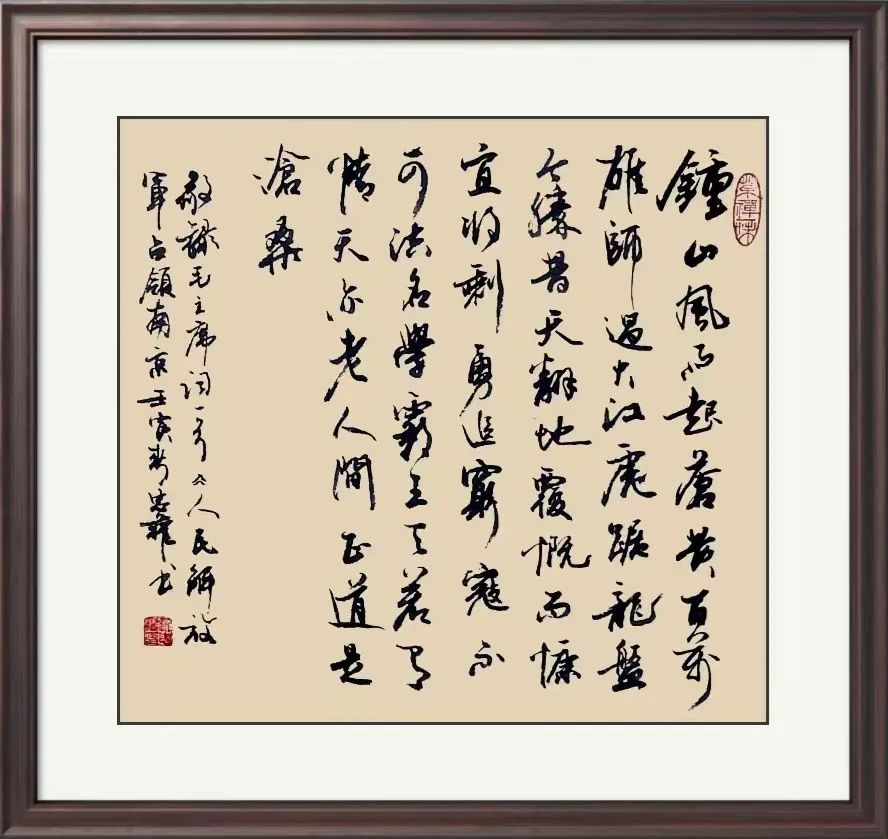 鍾山風雨起蒼黄百萬
雄師過大江虎踞龍盤
今勝昔天翻地覆慨而慷
宜将剩勇追窮寇不
可沽名學霸王天若有
情天亦老人間正道是
滄桑
敬録毛主席詞一首《人民解放
軍占領南京壬寅忠雄书